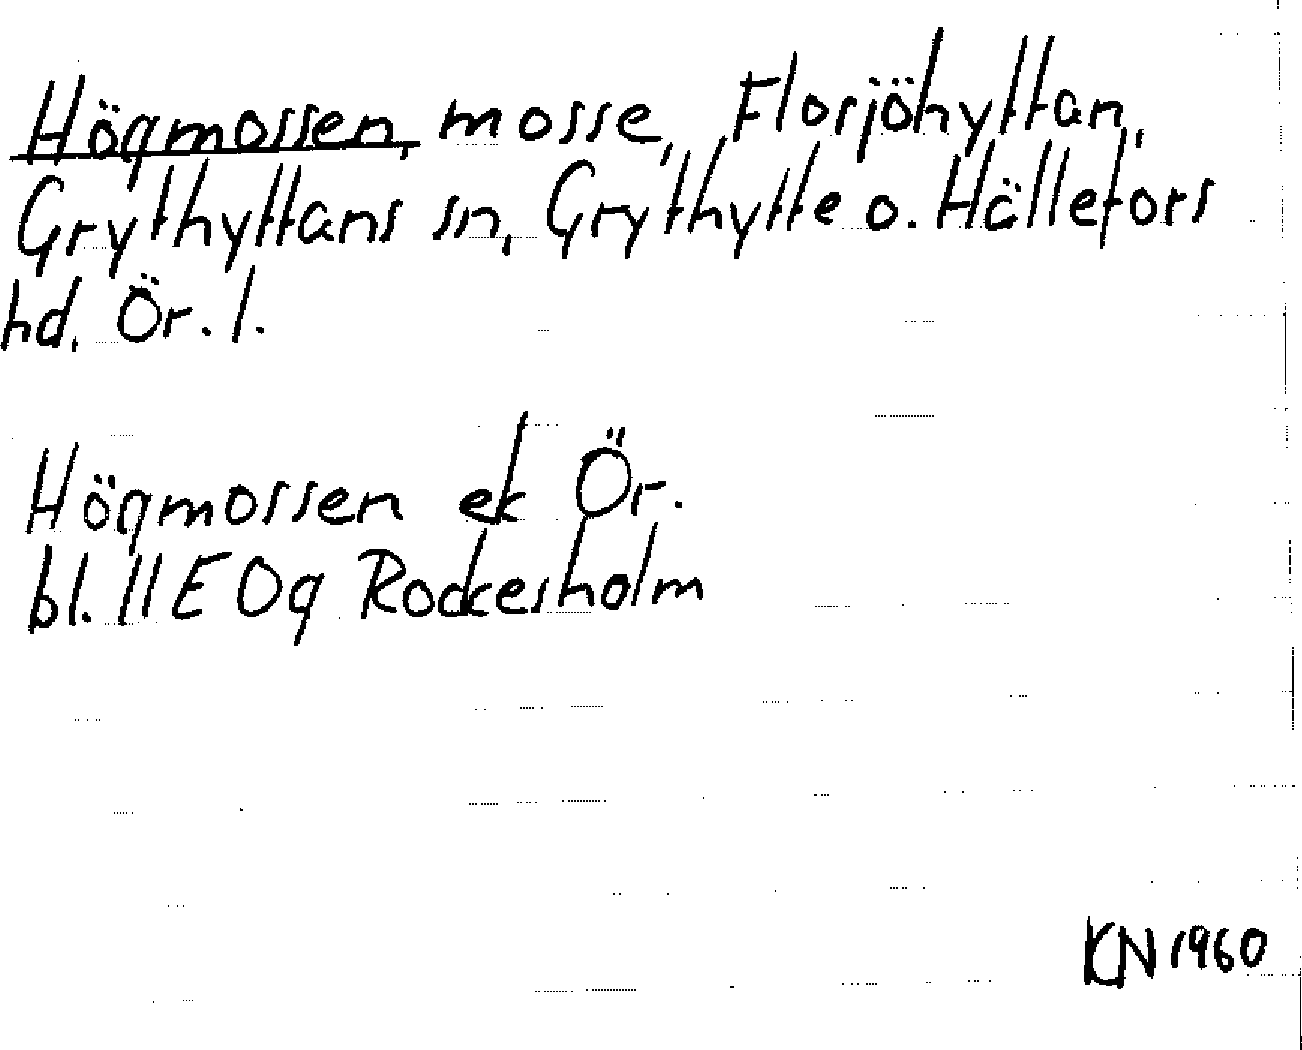 Högmossen, mosse, Flosjöhyttan,
Grythyttans sn, Grythytte o. Hällefors
hd. Ör. l.
Högmossen ek Ör.
bl. 11E 0g Rockesholm
KN 1960